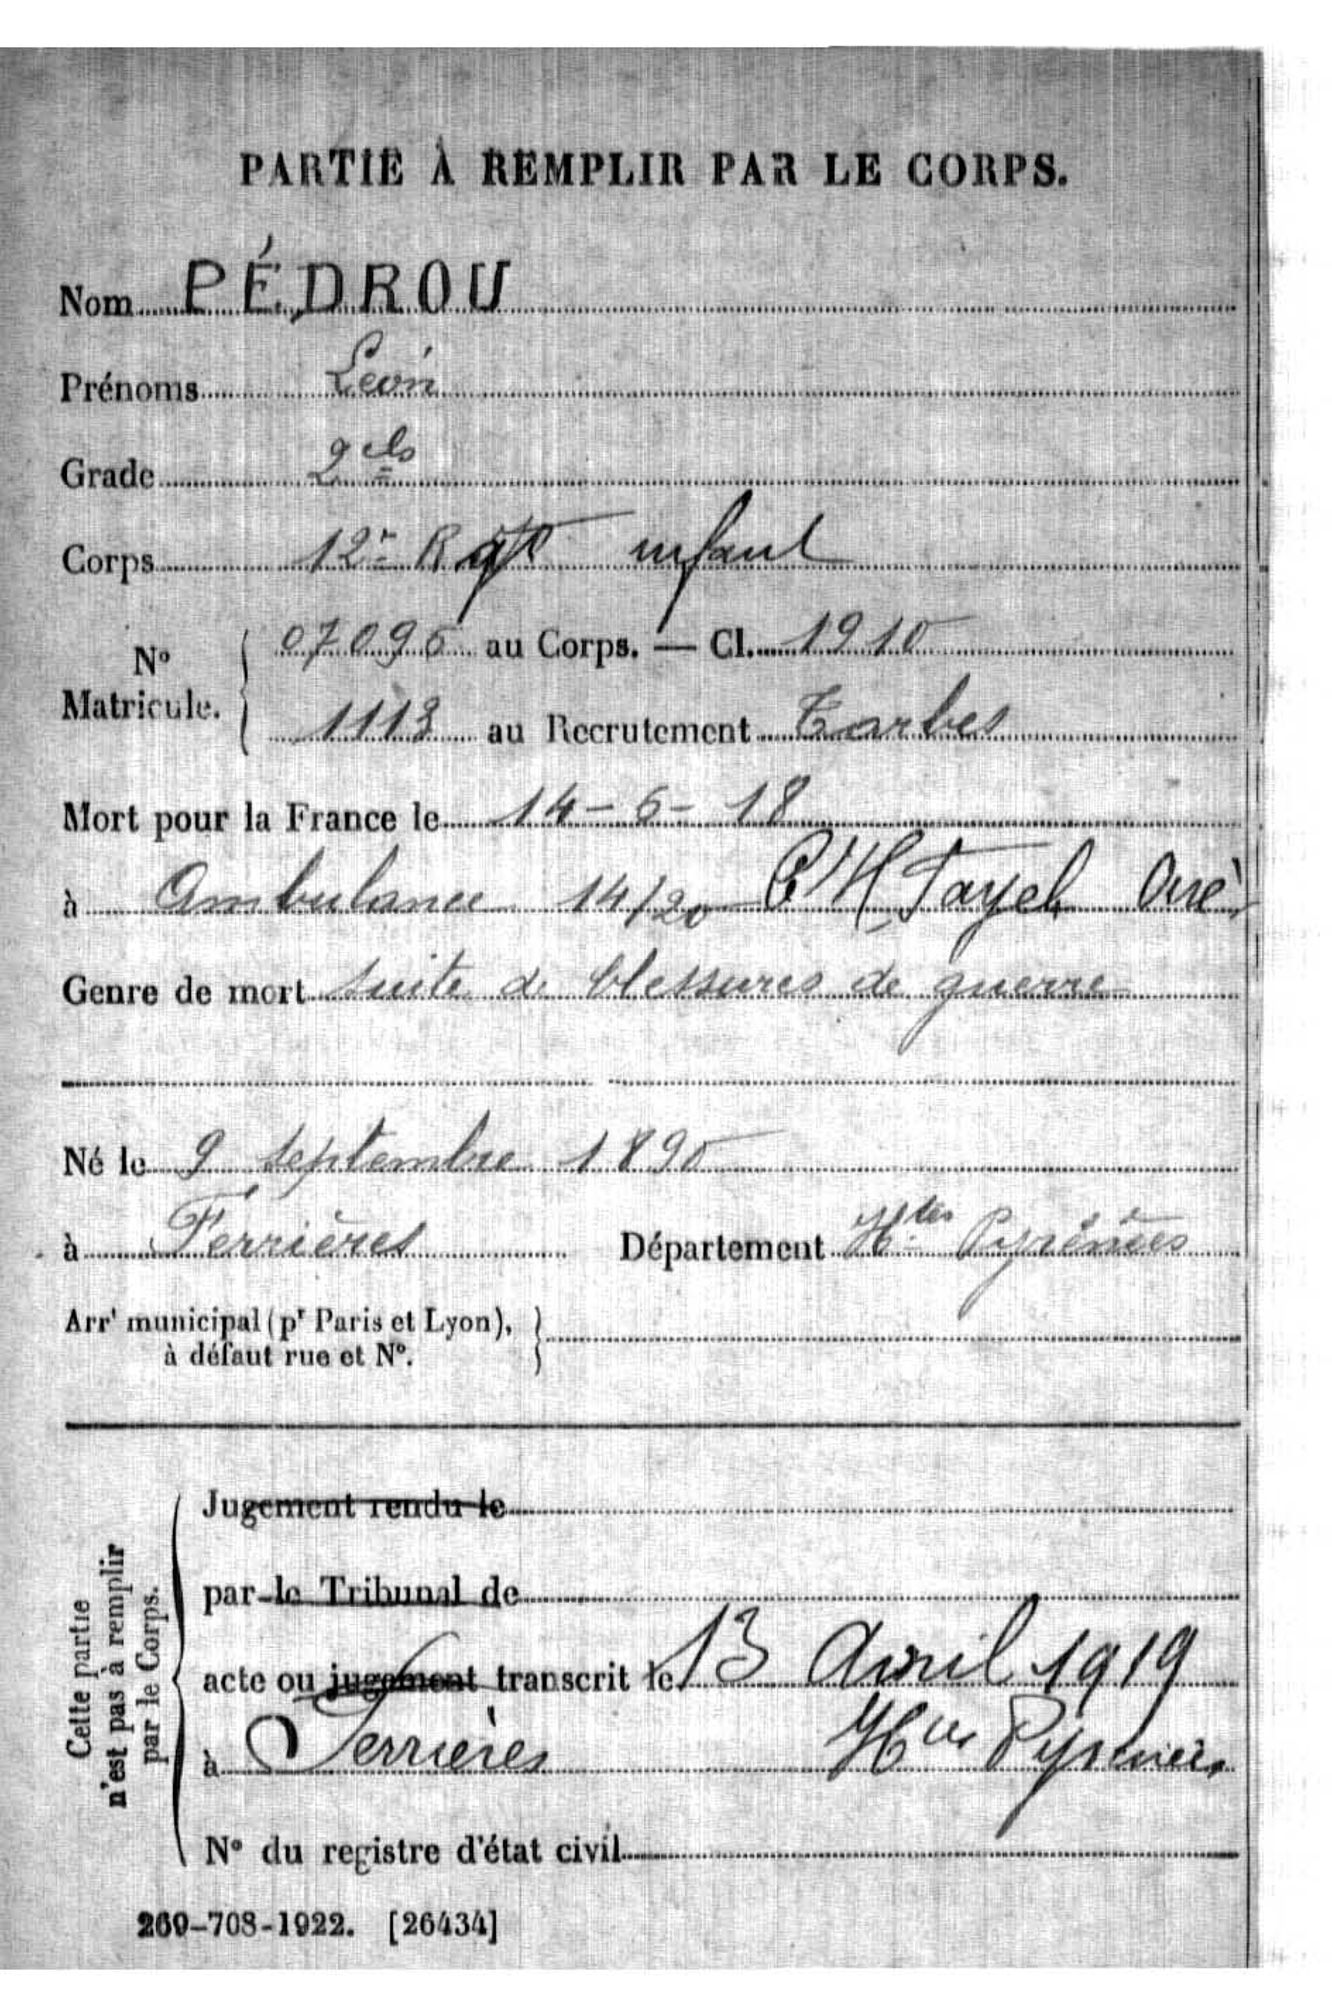 PARTIE À REMPLIR PAR LE CORPS.
Nom PÉDROU
Prénoms Léon
Grade 2 cls
Corps 12e Rgt infant
N° Matricule. 07096 au Corps. — Cl. 1910
1113 au Recrutement Tarbes
Mort pour la France le 14-6-18
à Ambulance 14/20 Tayel
Genre de mort suite de blessures de guerre
Né le 9 septembre 1890
à Ferrières Département Htes Pyrénées
Arrt municipal (pr Paris et Lyon),
à défaut rue et N°.
Cette partie
n'est pas à remplir
par le Corps.
Jugement rendu le
par le Tribunal de
acte ou jugement transcrit le 13 Avril 1919
à Ferrières Htes Pyrénées
N° du registre d'état civil
269-708-1922. [26434]